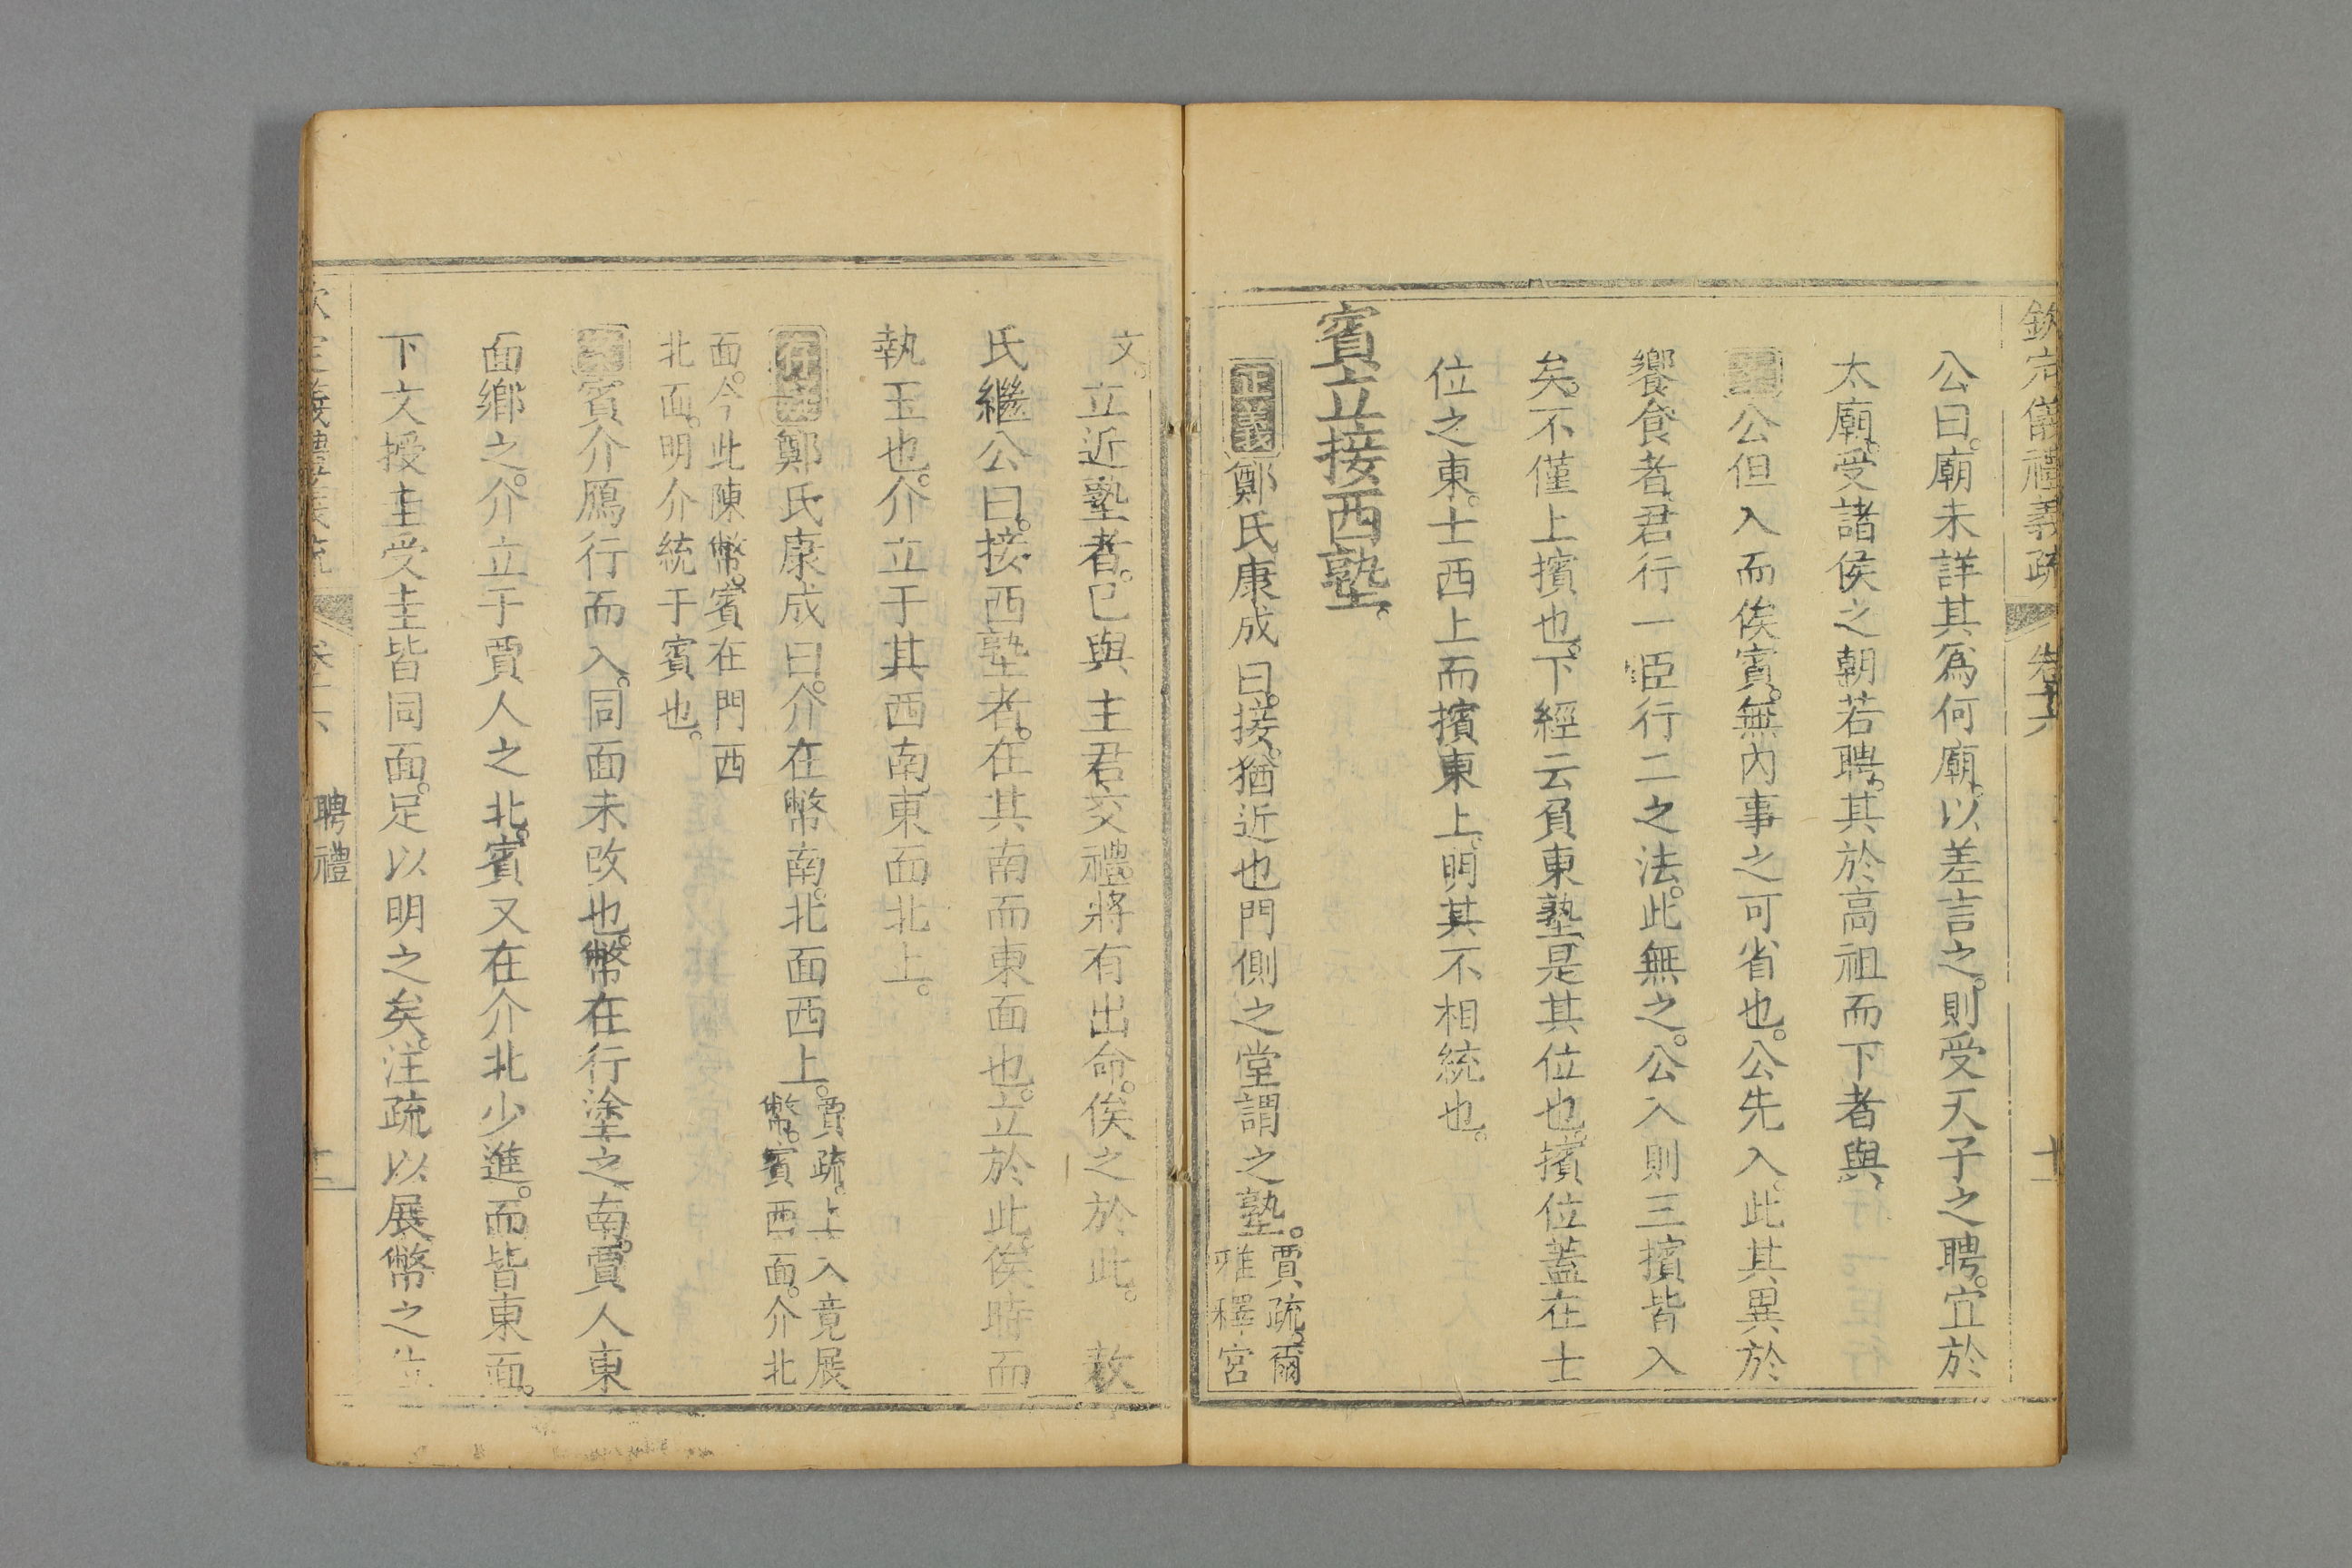 欽定儀禮義疏 卷十六
公曰。廟未詳其爲何廟。以差言之。則受天子之聘。宜於
太廟。受諸侯之朝若聘。其於高祖而下者與
公但入而俟賓。無內事之可省也。公先入。此其異於
饗食者。君行一臣行二之法。此無之。公入則三擯皆入
矣。不僅上擯也。下經云負東塾是其位也。擯位蓋在士
位之東。士西上而擯東上。明其不相統也。
賓立接西塾。
正義鄭氏康成曰。接。猶近也門側之堂謂之塾。賈疏。爾
雅釋宮
文。立近塾者。已與主君交禮。將有出命。俟之於此。 敖
氏繼公曰。接西塾者。在其南而東面也。立於此。俟時而
執玉也。介立于其西南。東面北上。
存疑鄭氏康成曰。介在幣南。北面西上。賈疏。上入竟展
幣。賓西面。介北
面。今此陳幣。賓在門西
北面。明介統于賓也。
賓介鴈行而入。同面未改也。幣在行塗之南。賈人東
面鄉之。介立于賈人之北。賓又在介北少進。而皆東面。
下文授圭受圭皆同面。足以明之矣。注疏以展幣之
聘禮